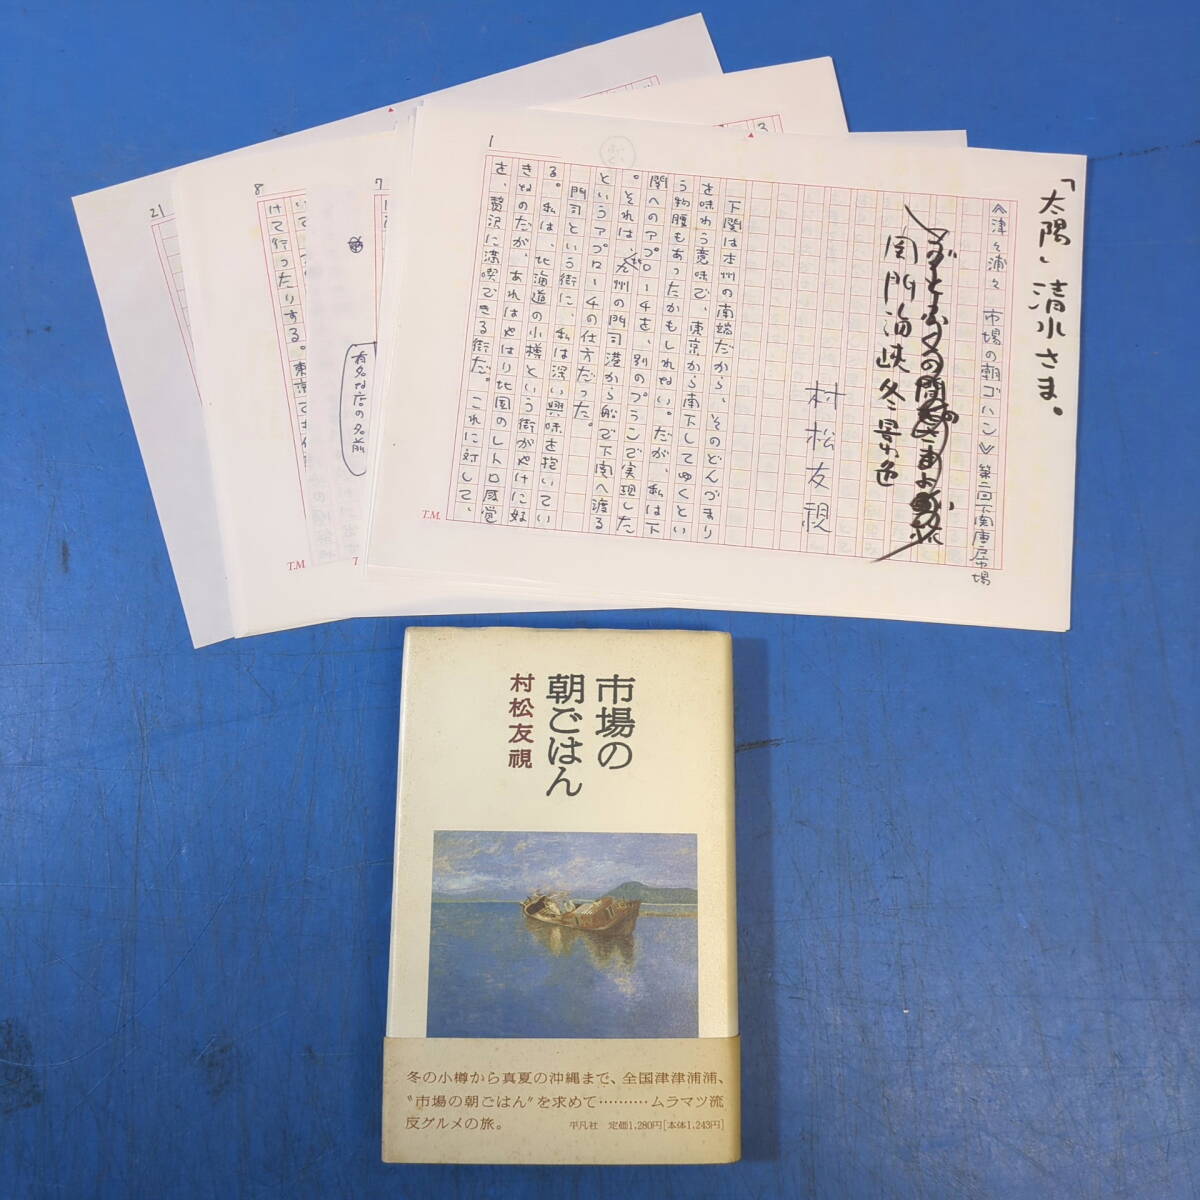 「太陽」清水さま。
《津々浦々 市場の朝ゴハン》第二回下関唐戸市場
関門海峡冬景色
村松友視
下関は本州の南端だから、そのどんづまり
を味わう意味で、東京から南下してゆくとい
う物腰もあったかもしれない。だが、私は下
関へのアプローチを、別のプランで実現した
。それは、九州の門司港から船で下関へ渡る
というアプローチの仕方だった。
門司という街に、私は深い興味を抱いてい
る。私は、北海道の小樽という街がやけに好
きなのだが、あれはやはり北国のレトロ感覚
を、贅沢に満喫できる街だ。これに対して、
1
T.M.
3
7
有名な店の名前
T
8
けて行ったりする。東京で
T.M.
21
市場の
朝ごはん
村松友視
冬の小樽から真夏の沖縄まで、全国津津浦浦、
"市場の朝ごはん"を求めて……… ムラマツ流
反グルメの旅。
平凡社 定価1,280円[本体1,243円]